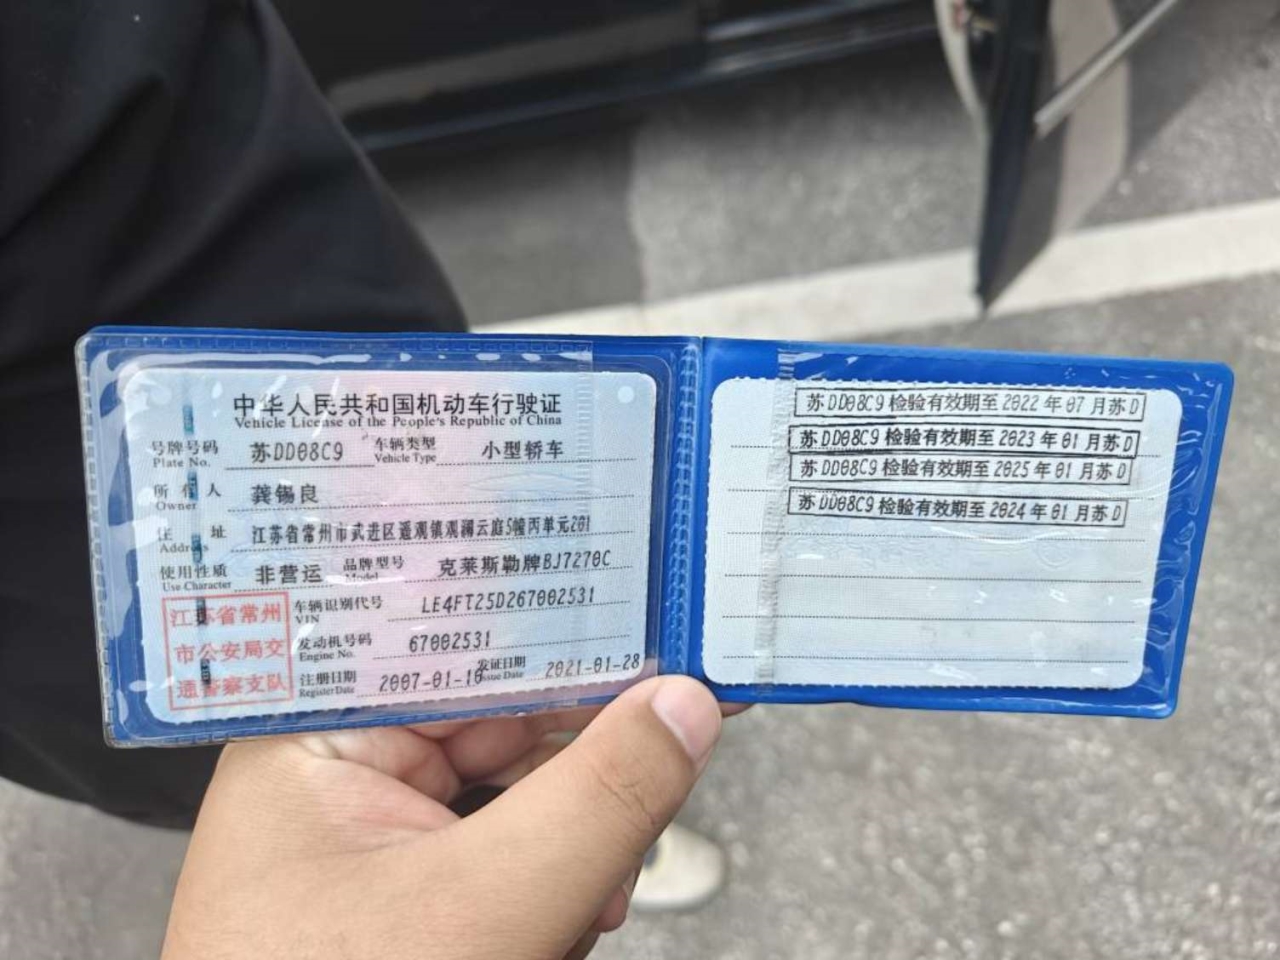 中华人民共和国机动车行驶证
Vehicle License of the People's Republic of China
号牌号码 苏DD08C9 车辆类型 小型轿车
Plate No. Vehicle Type
所有人 龚锡良
Owner
住址 江苏省常州市武进区遥观镇观澜云庭5幢丙单元201
Address
使用性质 非营运 品牌型号 克莱斯勒牌BJ7270C
Use Character Model
江苏省常州
市公安局交
通警察支队
车辆识别代号 LE4FT25D267002531
VIN
发动机号码 67002531
Engine No.
注册日期 2007-01-10 发证日期 2021-01-28
Register Date Issue Date
苏DD08C9 检验有效期至 2022 年 07 月苏D
苏DD08C9 检验有效期至 2023 年 01 月苏D
苏DD08C9 检验有效期至 2025 年 01 月苏D
苏DD08C9 检验有效期至 2024 年 01 月苏D